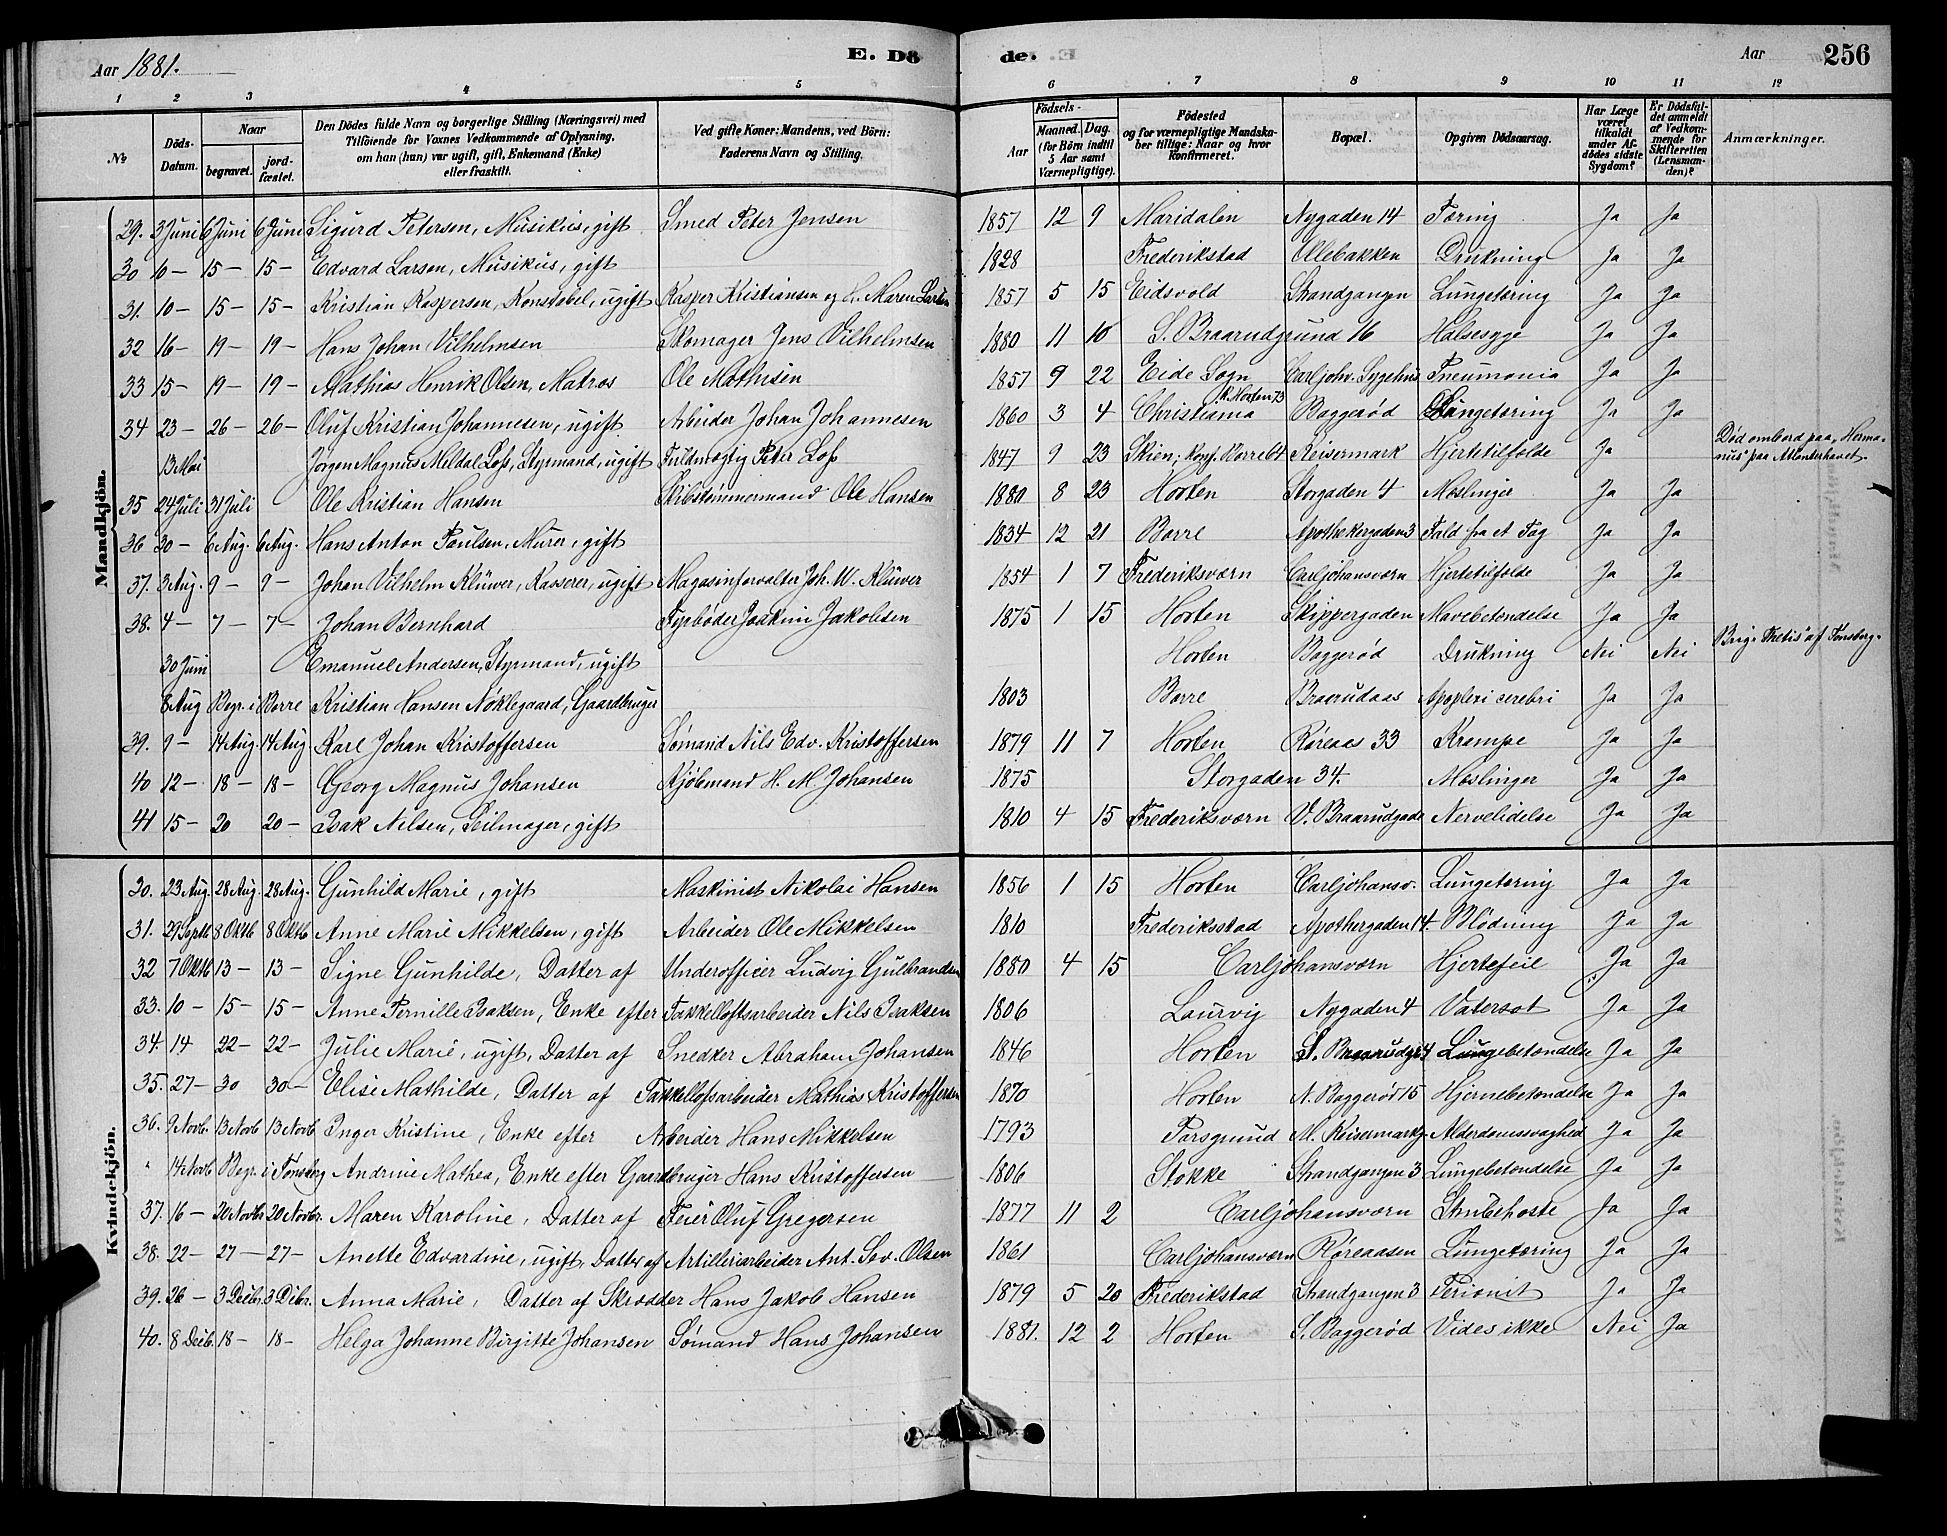 Aar 1881. E. Dö de. Aar 256
1 2 3 4 5 6 7 8 9 10 11 12
№ Döds-Datum. Naar begravet. jord-fæstet. Den Dödes fulde Navn og borgerlige Stilling (Næringsvei) med Tilföiende for Voxnes Vedkommende af Oplysning, om han (hun) var ugift, gift, Enkemand (Enke) eller fraskilt. Ved gifte Koner: Mandens, ved Börn: Faderens Navn og Stilling. Födsels- Aar Maaned. Dag. (for Börn indtil 5 Aar samt Værnepligtige). Födested og for værnepligtige Mandskaber tillige: Naar og hvor konfirmeret. Bopæl. Opgiven Dödsaarsag. Har Læge været tilkaldt under Afdödes sidste Sygdom? Er Dödsfaldet anmeldt af Vedkommende for Skifteretten (Lensmanden)? Anmærkninger.
Mandkjön.
29. 3 Juni 6 Juni 6 Juni Sigurd Petersen, Musikus, gift Smed Peter Jensen 1857 12 9 Maridalen Nygaden 14 Tæring Ja Ja
30 10 – 15 – 15 – Edvard Larsen, Musikus, gift 1828 Frederikstad Ollebakken Drukning Ja Ja
31. 10 – 15 – 15 – Kristian Kaspersen, Konstabel, ugift Kasper Kristiansen og H. Maren Larsen 1857 5 15 Eidsvold Strandgangen Lungetæring Ja Ja
32 16 – 19 – 19 – Hans Johan Vilhelmsen Skomager Jens Vilhelmsen 1880 11 10 S. Braarudgrund 16 Halsesyge Ja Ja
33 15 – 19 – 19 – Mathias Henrik Olsen, Matros Ole Mathisen 1857 9 22 Eide Sogn Carljohv. Sygehus Pneumonia Ja Ja
34 23 – 26 – 26 – Oluf Kristian Johannesen, ugift Arbeider Johan Johannesen 1860 3 4 Christiania K. Horten 73 Baggerød Lungetæring Ja Ja
13 Mai Jørgen Magnus Meldal Loss, Styrmand, ugift Fuldmægtig Peter Loss 1847 9 23 Skien; konf. Borre 64 Keisermark Hjertetilfælde Ja Død ombord paa "Hermanus" paa Atlanterhavet
35 24 Juli 31 Juli Ole Kristian Hansen Skibstømmermand Ole Hansen 1880 8 23 Horten Storgaden 4 Meslinger Ja Ja
36 30 – 6 Aug. 6 Aug. Hans Anton Paulsen, Murer, gift 1834 12 21 Borre Apothekergaden 3 Fald fra et Tag Ja Ja
37. 3 Aug. 9 – 9 – Johan Vilhelm Klüwer, Kasserer, ugift Magasinforvalter Joh. W. Klüwer 1854 1 7 Frederiksværn Carljohansværn Hjertetilfælde Ja Ja
38. 4 – 7 – 7 – Johan Bernhard Fyrbøder Joakim Jakobsen 1875 1 15 Horten Skippergaden Mavebetændelse Ja Ja
30 Juni Emanuel Andersen, Styrmand, ugift Horten Baggerød Drukning Nei Nei Brig "Thetis" af Tønsberg.
8 Aug Begr. i Borre Kristian Hansen Nøklegaard, Gaardbruger 1803 Borre Braarudaas Apoplexi cerebri Ja Ja
39. 9 – 14 Aug. 14 Aug Karl Johan Kristoffersen Sømand Nils Edv. Kristoffersen 1879 11 7 Horten Røreaas 33 Krampe Ja Ja
40 12 – 18 – 18 – Georg Magnus Johansen Kjøbmand H. M. Johansen 1875 Storgaden 34. Meslinger Ja Ja
41 15 – 20 20 – Isak Nilsen, Seilmager, gift 1810 4 15 Frederiksværn V. Braarudgade Nervelidelse Ja Ja
Kvindekjön.
30. 23 Aug. 28 Aug. 28 Aug. Gunhild Marie, gift Maskinist Nikolai Hansen 1856 1 15 Horten Carljohansv. Lungetæring Ja Ja
31. 29 Septb 8 Oktb 8 Oktb Anne Marie Mikkelsen, gift Arbeider Ole Mikkelsen 1810 Frederiksstad Apothergaden 14. Blødning Ja Ja
32 7 Oktb 13 – 13 – Signe Gunhilde, Datter af Underofficer Ludvig Gulbrandsen 1880 4 15 Carljohansværn Hjertefeil Ja Ja
33. 10 – 15 – 15 – Anne Pernille Isaksen, Enke efter Takkelloftsarbeider Nils Isaksen 1806 Laurvig Nygaden 4 Vatersot Ja Ja
34. 14 22 – 22 – Julie Marie, ugift, Datter af Snedker Abraham Johansen 1846 Horten S. Braarudgr 4 Lungebetændelse Ja Ja
35. 27 – 30 30 – Elise Mathilde, Datter af Takkellofsarbeider Mathias Kristoffersen 1870 Horten N. Baggerød 15 Hjernebetændelse Ja Ja
36. 9 Novb. 13 Novb 13 Novb Inger Kristine, Enke efter Arbeider Hans Mikkelsen 1793 Porsgrund M. Keisermarkg. Alderdomsvaghed Ja Ja
" 14 Novb Begr. i Tønsberg Andrine Mathea, Enke efter Gaardbruger Hans Kristoffersen 1806 Stokke Strandgangen 3 Lungebetændelse Ja Ja
37. 16 – 20 Novbr 20 Novbr. Maren Karoline, Datter af Feier Oluf Gregersen 1877 11 2 Carljohansværn Strubehoste Ja Ja
38. 22 – 27 – 27 – Anette Edvardine, ugift, Datter af Artilleriarbeider Ant. Sev. Olsen 1861 Carljohansværn Røreaasen Lungetæring Ja Ja
39. 26 – 3 Decbr. 3 Dcbr. Anna Marie, Datter af Skrædder Hans Jakob Hansen 1879 5 20 Frederikstad Strandgangen 3 Perionit Ja Ja
40. 8 Decb. 18 – 18 – Helga Johanne Birgitte Johansen Sømand Hans Johansen 1881. 12 2 Horten S. Baggerød Vides ikke Nei Ja